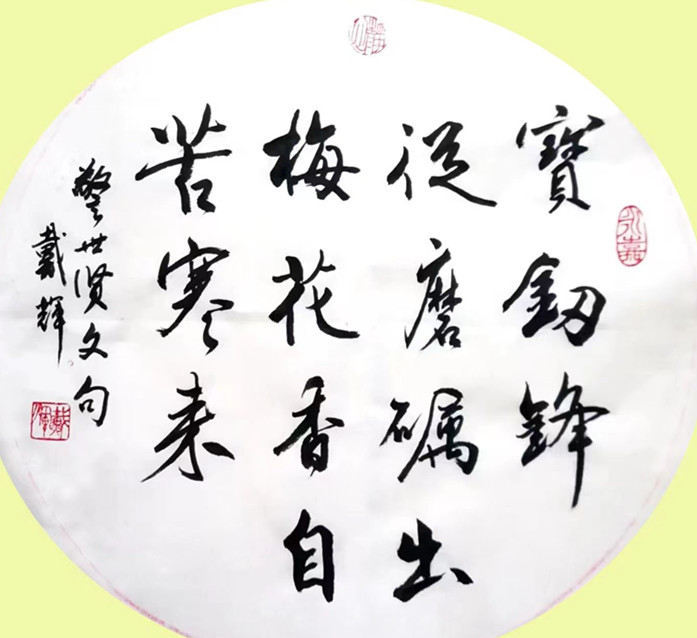 寶釰鋒
從磨礪出
梅花香自
苦寒来
警世贤文句
戴輝